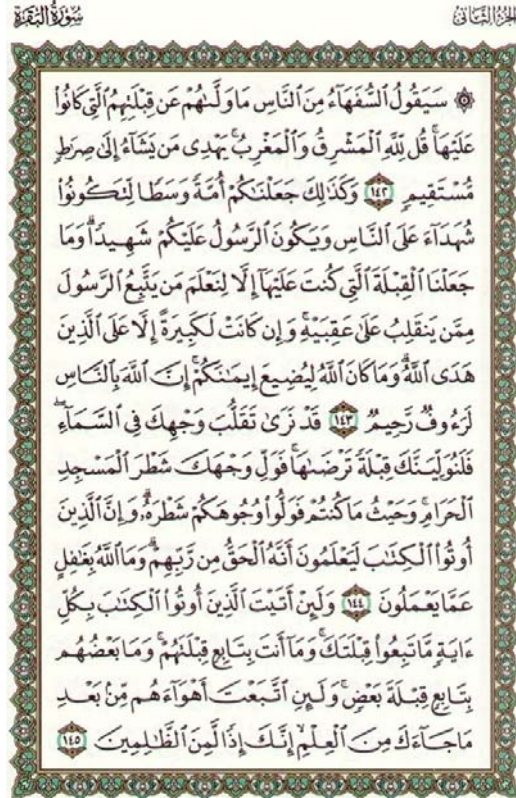 سُورَةُ البَقَرَةِ
الجزء الثاني
۞ سَيَقُولُ ٱلسُّفَهَآءُ مِنَ ٱلنَّاسِ مَا وَلَّىٰهُمْ عَن قِبْلَتِهِمُ ٱلَّتِى كَانُوا۟
عَلَيْهَا ۚ قُل لِّلَّهِ ٱلْمَشْرِقُ وَٱلْمَغْرِبُ ۚ يَهْدِى مَن يَشَآءُ إِلَىٰ صِرَٰطٍ
مُّسْتَقِيمٍ ١٤٢ وَكَذَٰلِكَ جَعَلْنَٰكُمْ أُمَّةً وَسَطًا لِّتَكُونُوا۟
شُهَدَآءَ عَلَى ٱلنَّاسِ وَيَكُونَ ٱلرَّسُولُ عَلَيْكُمْ شَهِيدًا ۗ وَمَا
جَعَلْنَا ٱلْقِبْلَةَ ٱلَّتِى كُنتَ عَلَيْهَآ إِلَّا لِنَعْلَمَ مَن يَتَّبِعُ ٱلرَّسُولَ
مِمَّن يَنقَلِبُ عَلَىٰ عَقِبَيْهِ ۚ وَإِن كَانَتْ لَكَبِيرَةً إِلَّا عَلَى ٱلَّذِينَ
هَدَى ٱللَّهُ ۗ وَمَا كَانَ ٱللَّهُ لِيُضِيعَ إِيمَٰنَكُمْ ۚ إِنَّ ٱللَّهَ بِٱلنَّاسِ
لَرَءُوفٌ رَّحِيمٌ ١٤٣ قَدْ نَرَىٰ تَقَلُّبَ وَجْهِكَ فِى ٱلسَّمَآءِ ۖ
فَلَنُوَلِّيَنَّكَ قِبْلَةً تَرْضَىٰهَا ۚ فَوَلِّ وَجْهَكَ شَطْرَ ٱلْمَسْجِدِ
ٱلْحَرَامِ ۚ وَحَيْثُ مَا كُنتُمْ فَوَلُّوا۟ وُجُوهَكُمْ شَطْرَهُۥ ۗ وَإِنَّ ٱلَّذِينَ
أُوتُوا۟ ٱلْكِتَٰبَ لَيَعْلَمُونَ أَنَّهُ ٱلْحَقُّ مِن رَّبِّهِمْ ۗ وَمَا ٱللَّهُ بِغَٰفِلٍ
عَمَّا يَعْمَلُونَ ١٤٤ وَلَئِنْ أَتَيْتَ ٱلَّذِينَ أُوتُوا۟ ٱلْكِتَٰبَ بِكُلِّ
ءَايَةٍ مَّا تَبِعُوا۟ قِبْلَتَكَ ۚ وَمَآ أَنتَ بِتَابِعٍ قِبْلَتَهُمْ ۚ وَمَا بَعْضُهُم
بِتَابِعٍ قِبْلَةَ بَعْضٍ ۚ وَلَئِنِ ٱتَّبَعْتَ أَهْوَآءَهُم مِّنۢ بَعْدِ
مَا جَآءَكَ مِنَ ٱلْعِلْمِ ۙ إِنَّكَ إِذًا لَّمِنَ ٱلظَّٰلِمِينَ ١٤٥